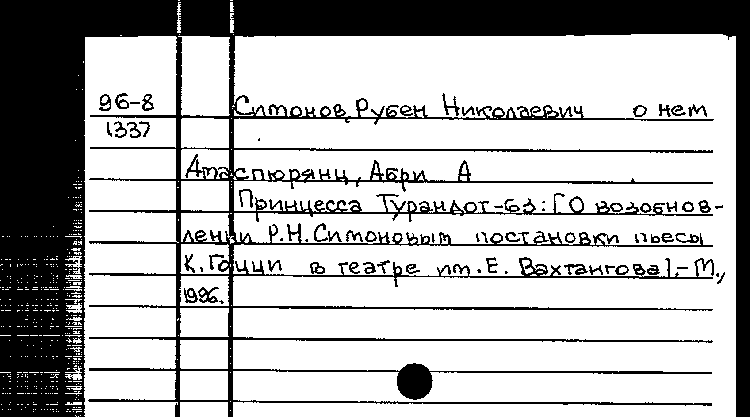 96-8 Симонов, Рубен Николаевич о нем
1337
Амаспюрянц, Абри А
Принцесса Турандот-63: [О возобнов-
лении Р.Н. Симоновым постановки пьесы
К. Гоцци в театре им. Е. Вахтангова].- М.,
1996.